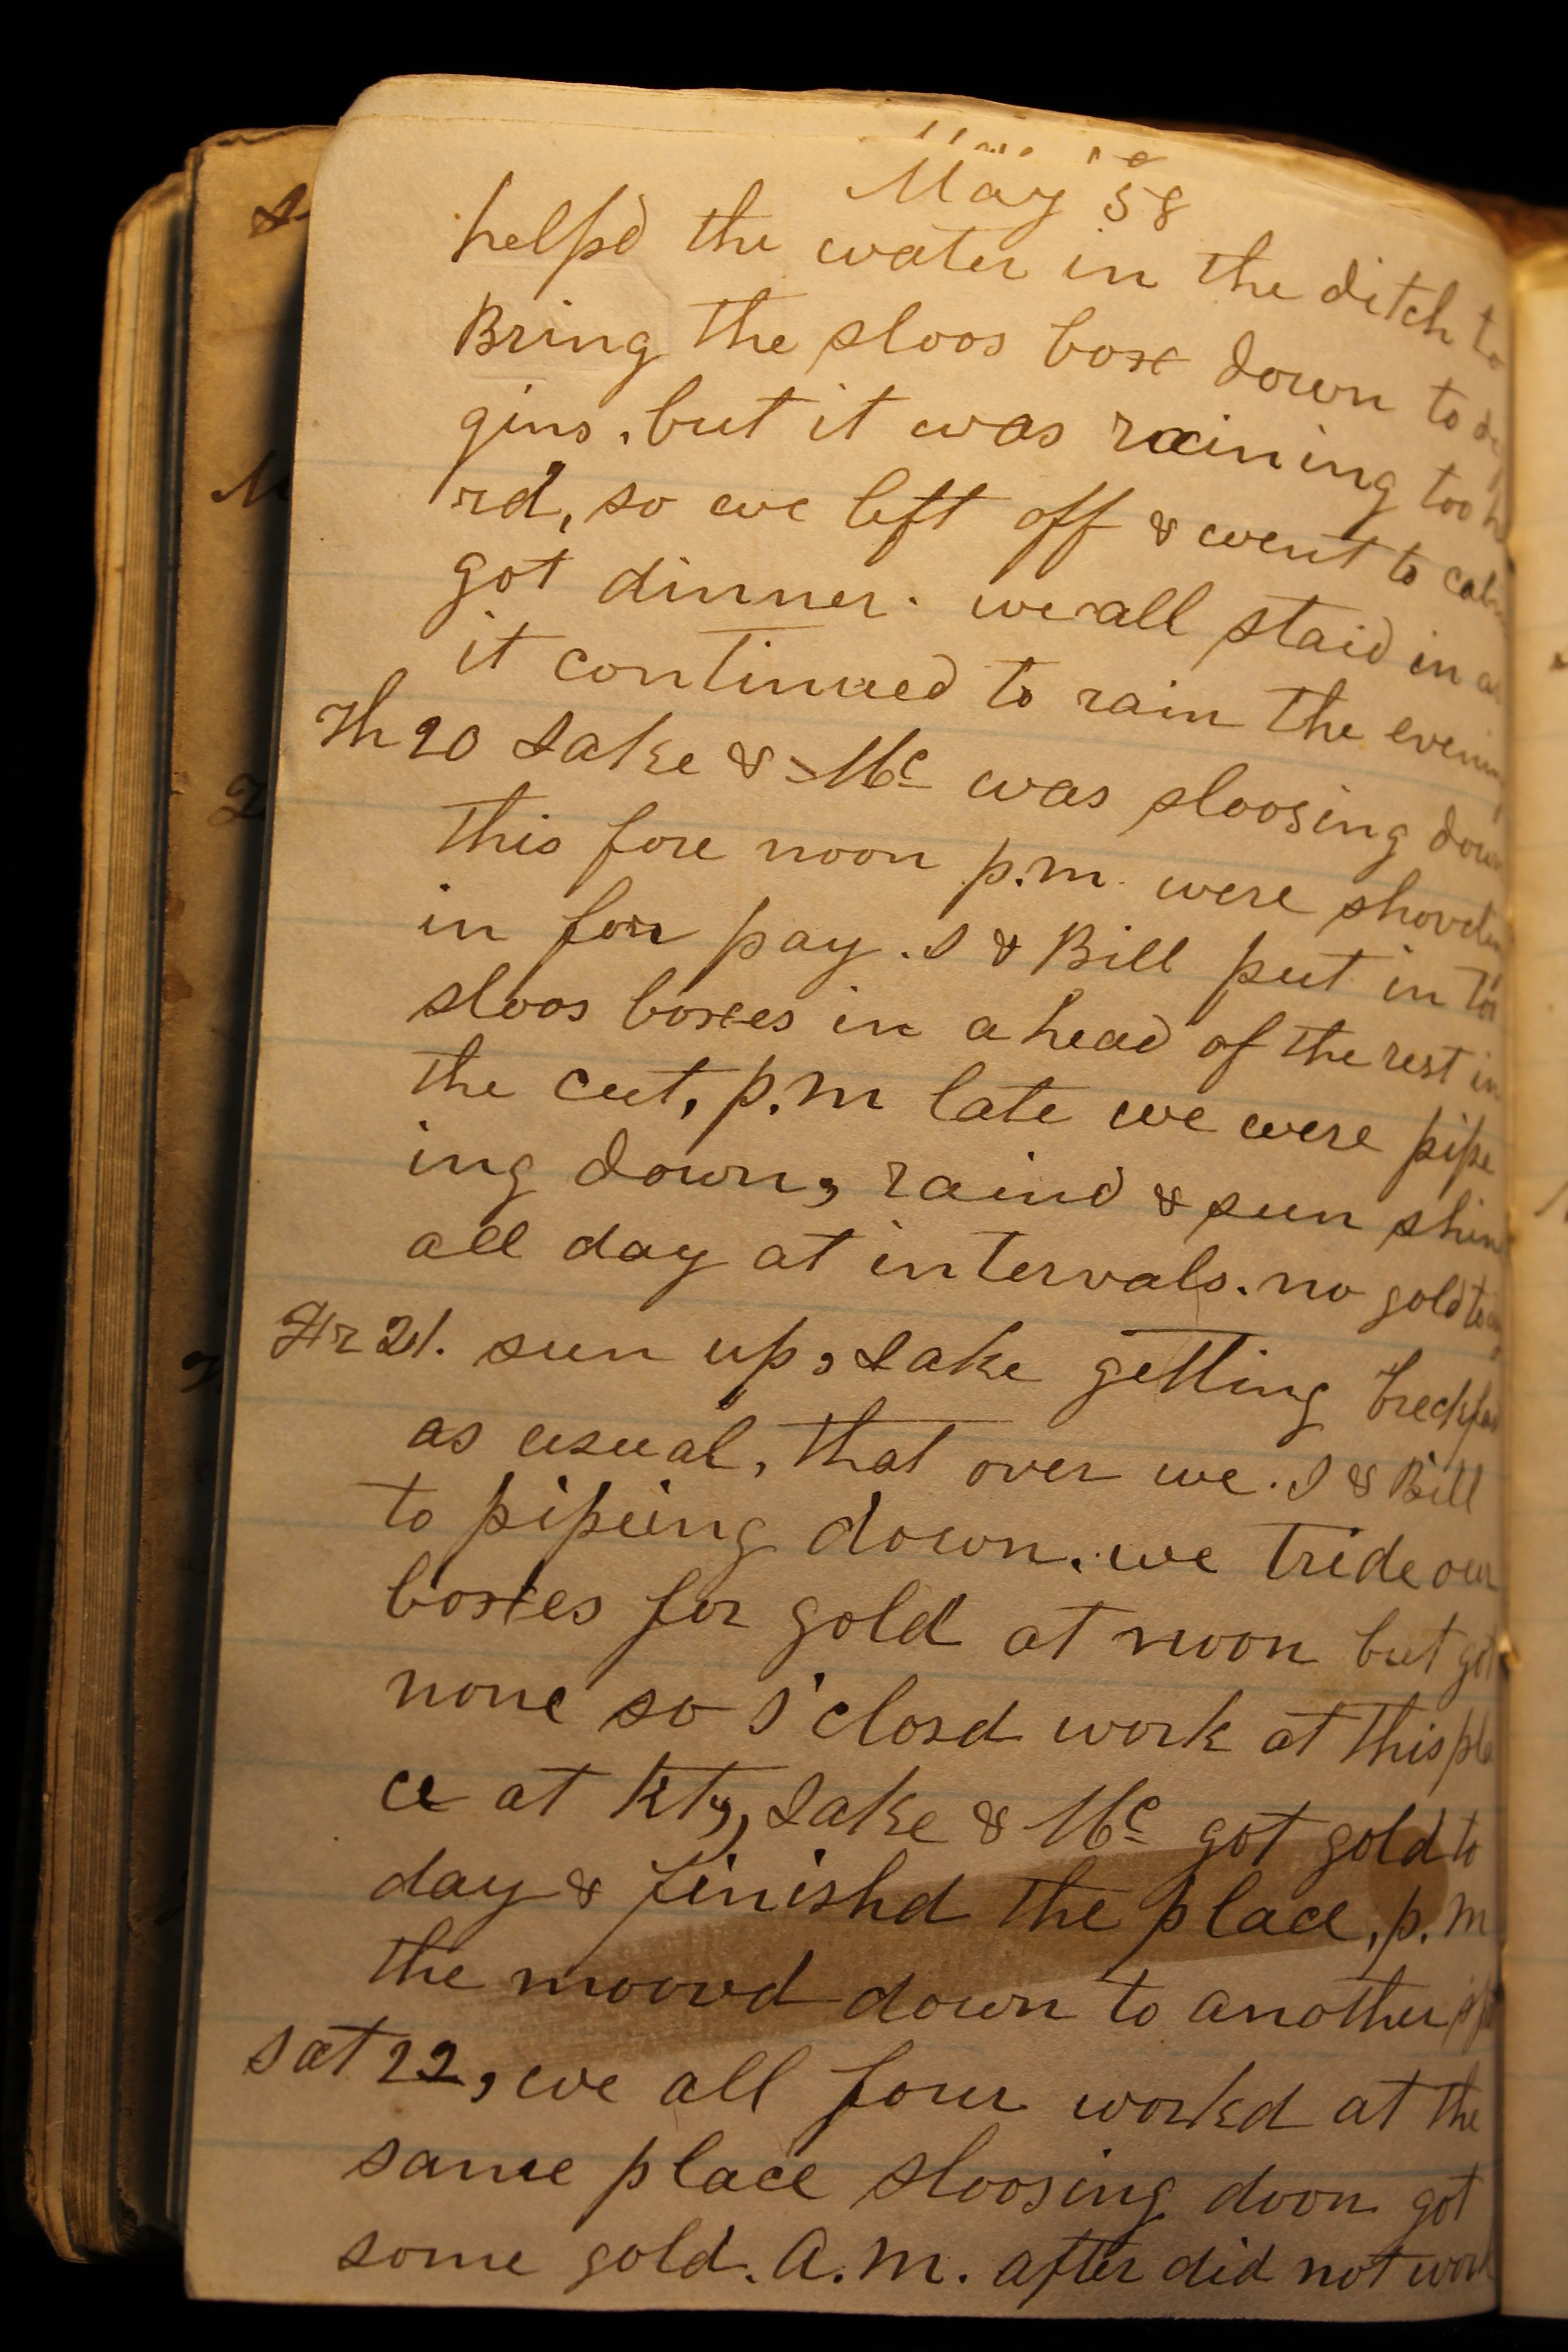 May 58
helpd the water in the ditch to
Bring the sloos box down to
gins, but it was raining too h
rd, so we left off & went to cabin
got dinner. we all staid in as
it continued to rain the evening
Th 20 Jake & Mc was sloosing down
this fore noon p.m. were shoveling
in for pay. I & Bill put in
sloos boxes in a head of the rest in
the cut, p.m late we were pipe
ing down, raind & sun shin
all day at intervals. no gold
Fr 21. sun up, Jake getting breckfast
as usual, that over we. I & Bill
to pipeing down. we tride our
boxes for gold at noon but got
none so I closd work at this pla
ce at Kty, Jake & Mc got gold to
day & finishd the place, p.m
the moovd down to another
Sat 22, we all four workd at the
same place sloosing doon got
some gold. A.M. after did not work